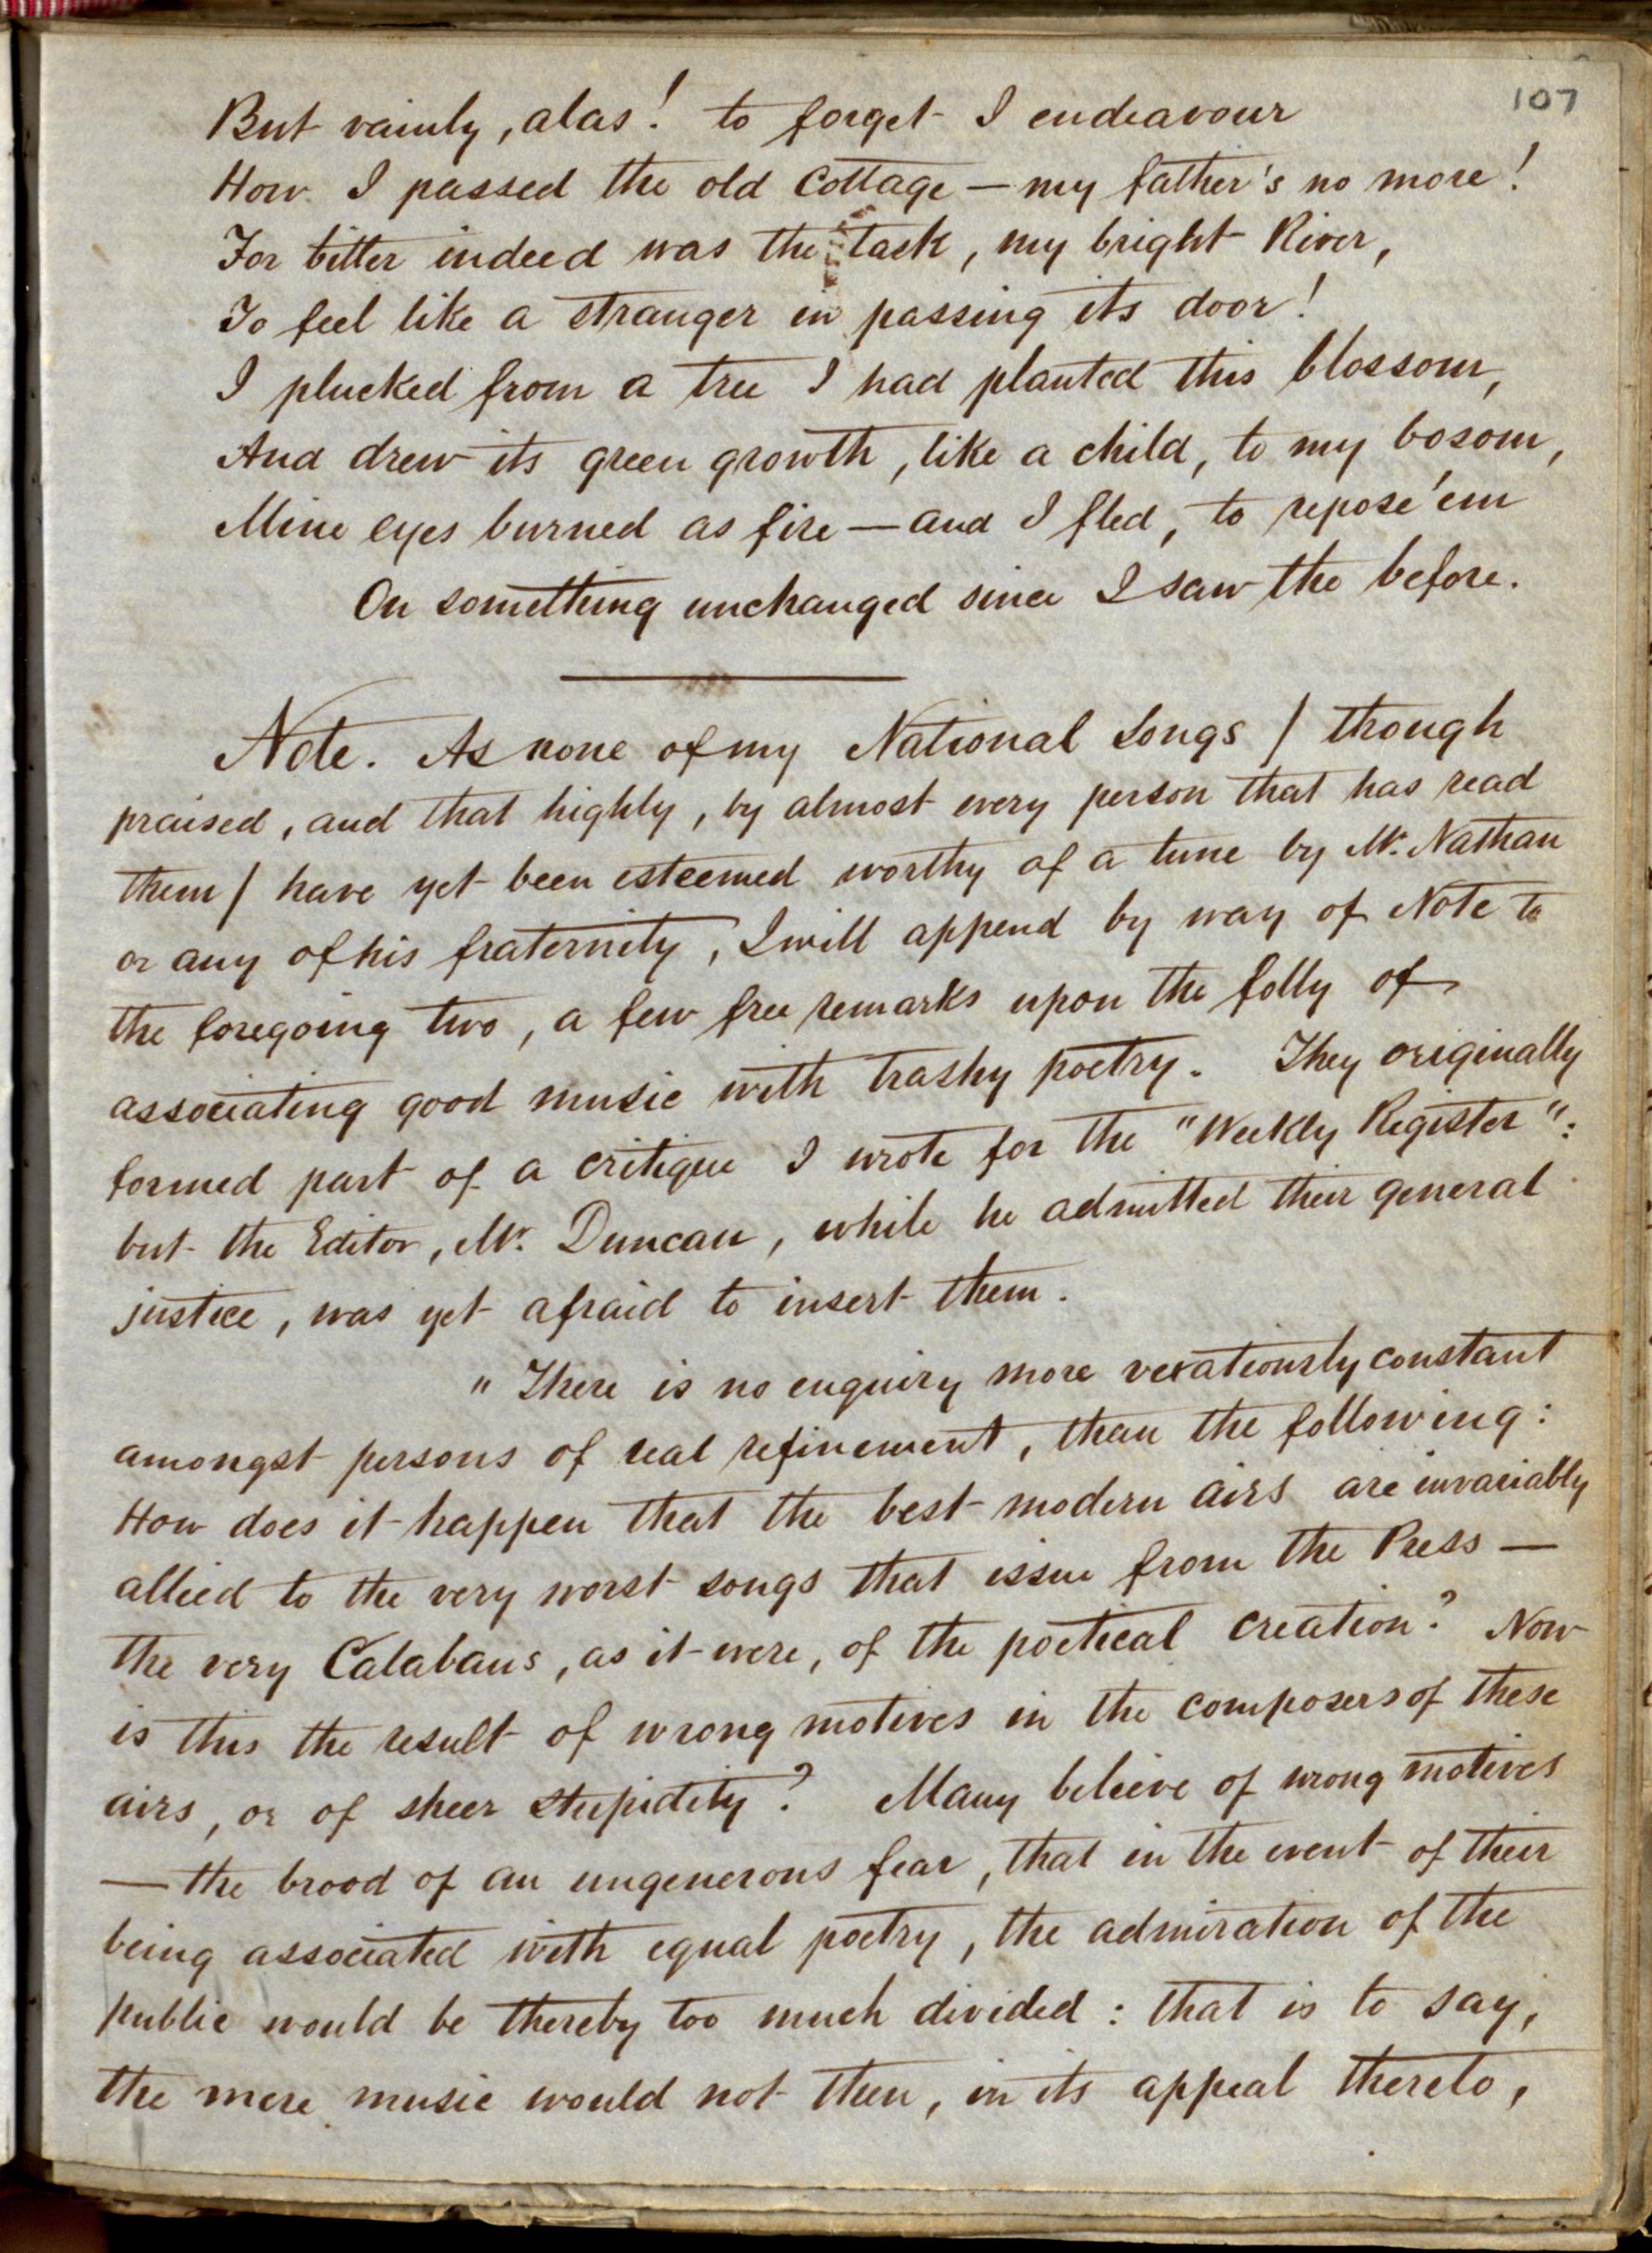 107
But vainly, alas! to forget I endeavour
How I passed the old Cottage — my father's no more!
For bitter indeed was the task, my bright River,
To feel like a stranger in passing its door!
I plucked from a tree I had planted this blossom,
And drew its green growth, like a child, to my bosom,
Mine eyes burned as fire — and I fled, to repose 'em
On something unchanged since I saw the before.
Note. As none of my National Songs / though
praised, and that highly, by almost every person that has read
them / have yet been esteemed worthy of a tune by Mr. Nathan
or any of his fraternity, I will append by way of Note to
the foregoing two, a few free remarks upon the folly of
associating good music with trashy poetry. They originally
formed part of a critique I wrote for the "Weekly Register":
but the Editor, Mr. Duncan, while he admitted their general
justice, was yet afraid to insert them.
"There is no enquiry more vexatiously constant
amongst persons of real refinement, than the following:
How does it happen that the best modern airs are invariably
allied to the very worst songs that issue from the Press —
the very Calabans, as it were, of the poetical creation? Now
is this the result of wrong motives in the composers of these
airs, or of sheer stupidity? Many believe of wrong motives
— the brood of an ungenerous fear, that in the event of their
being associated with equal poetry, the admiration of the
public would be thereby too much divided: that is to say,
the mere music would not then, in its appeal thereto,